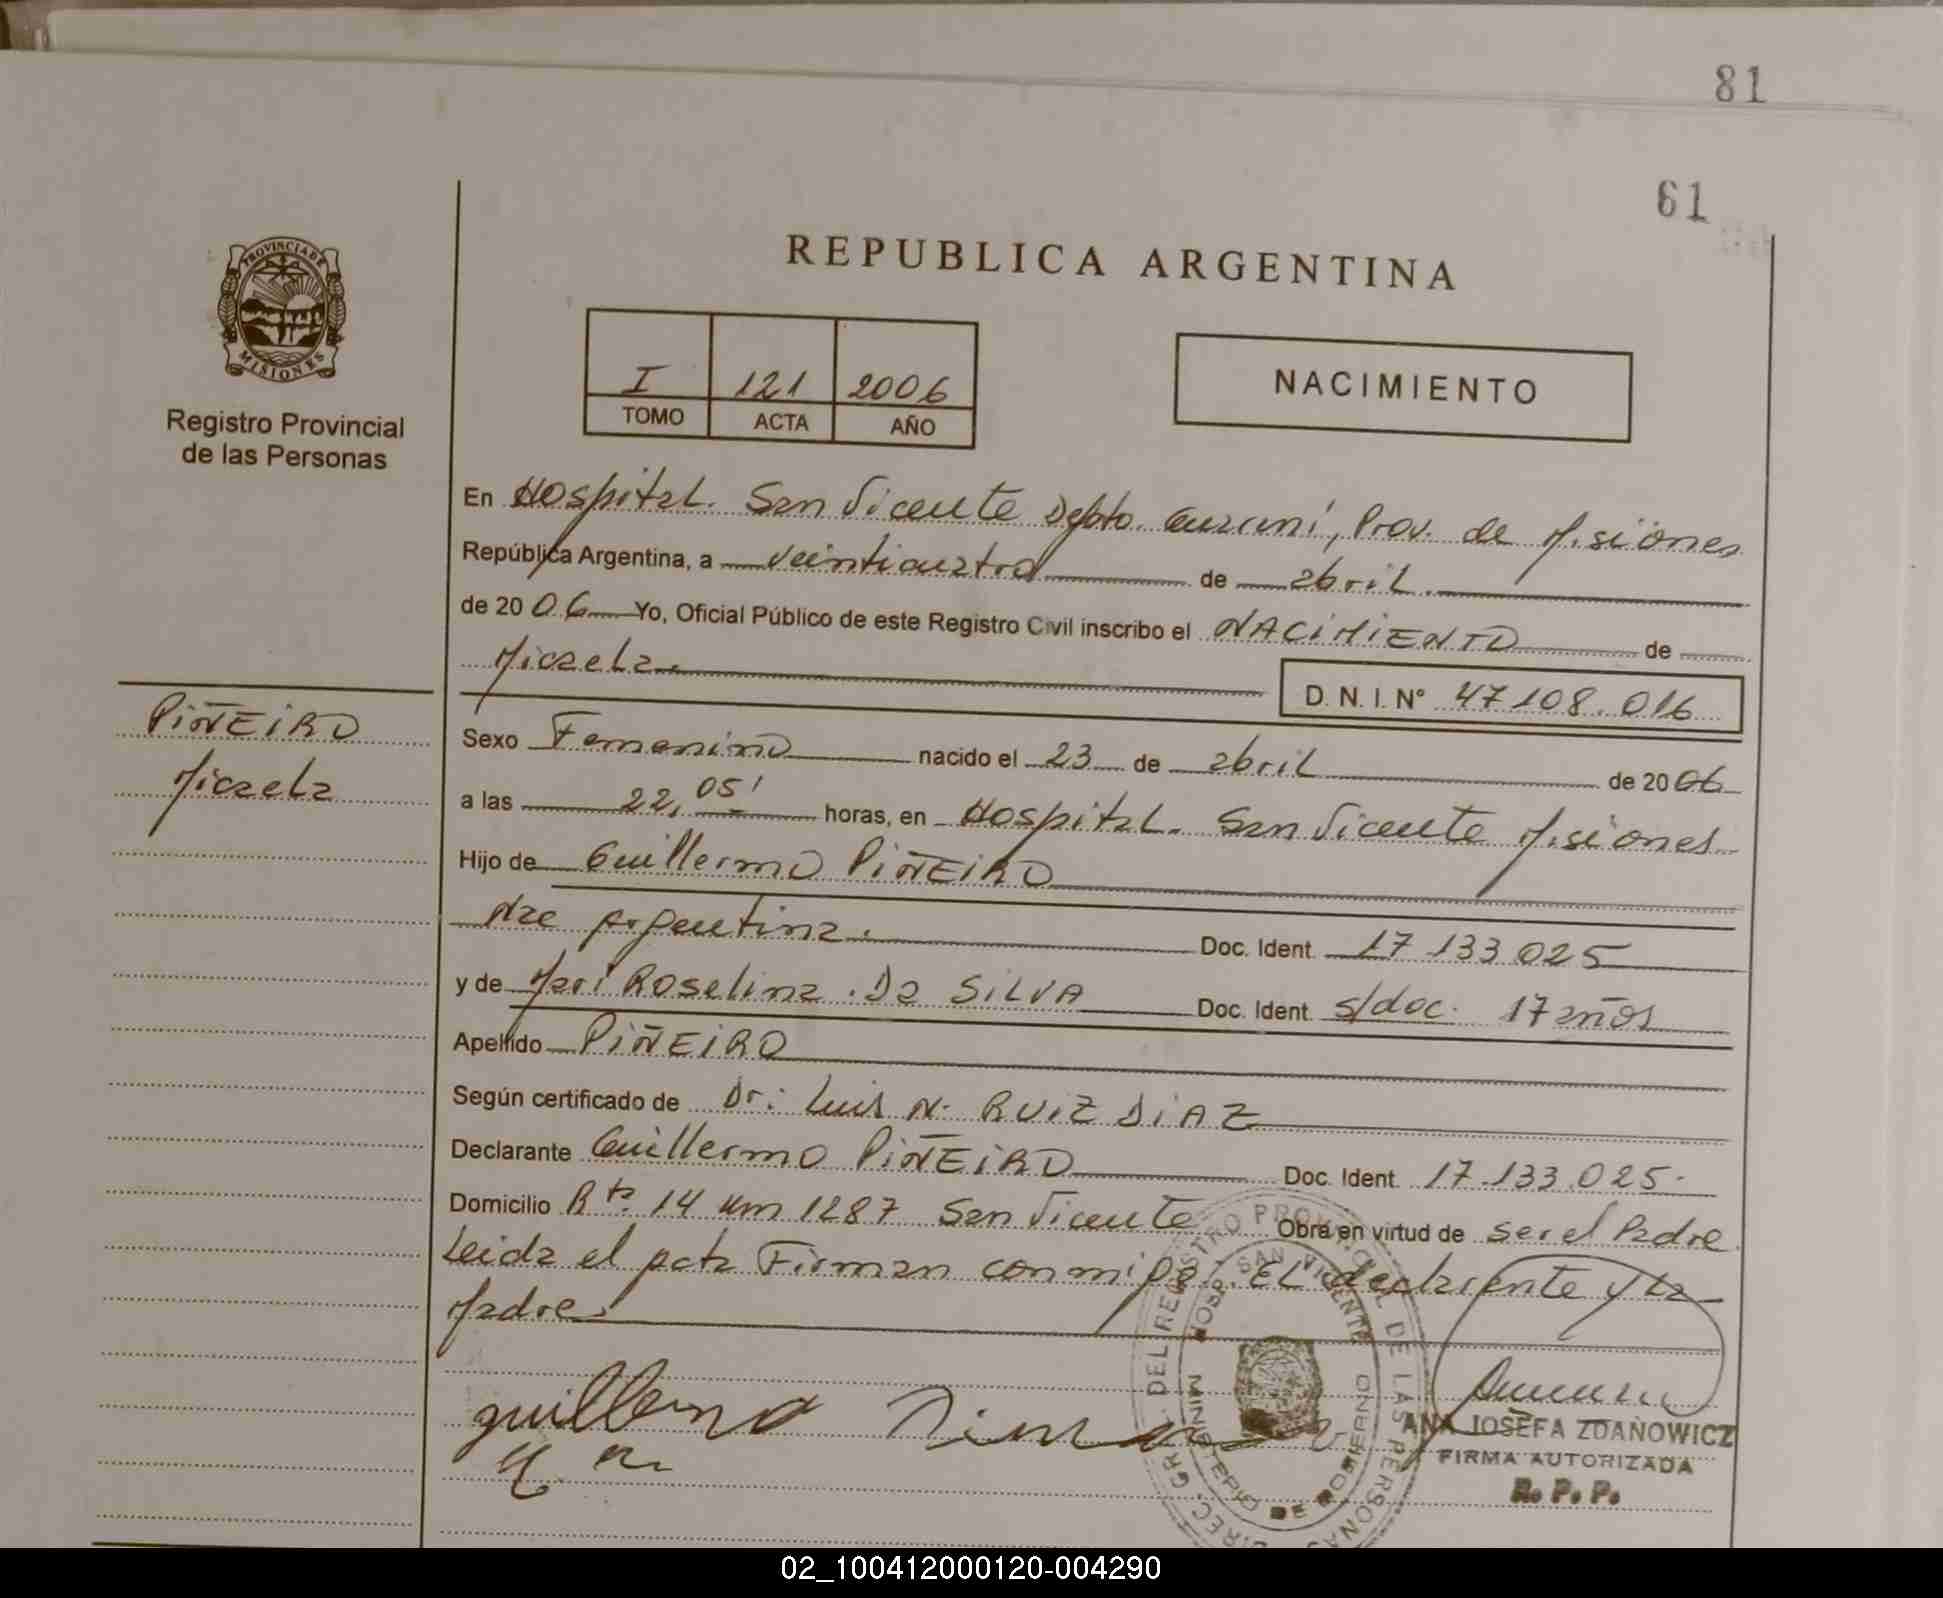 81
61
PROVINCIA DE
MISIONES
Registro Provincial
de las Personas
REPUBLICA ARGENTINA
I 121 2006
TOMO ACTA AÑO
NACIMIENTO
En Hospital. San Vicente Depto. Guaraní, Prov. de Misiones
República Argentina, a veinticuatro de abril.
de 2006 Yo, Oficial Público de este Registro Civil inscribo el NACIMIENTO de
Micaela.
D. N. I. N° 47108.016
PIÑEIRO
Micaela
Sexo Femenino nacido el 23 de abril de 2006
a las 22,05' horas, en Hospital. San Vicente Misiones
Hijo de Guillermo PIÑEIRO
Nac Argentina. Doc. Ident. 17.133.025
y de Mari Roselina. Da SILVA Doc. Ident. s/doc. 17 años
Apellido PIÑEIRO
Según certificado de Dr: Luis N. RUIZ DIAZ
Declarante Guillermo PIÑEIRO Doc. Ident. 17.133.025.
Domicilio Rta. 14 Km 1287 San Vicente Obra en virtud de ser el Padre
Leida el acta Firman conmigo. EL declarante y la
Madre
guillermo
DIREC. GRAL. DEL REGISTRO PROVINCIAL DE LAS PERSONAS
HOSP. SAN VICENTE
MINISTERIO DE GOBIERNO
ANA JOSEFA ZDANOWICZ
FIRMA AUTORIZADA
R. P. P.
02_100412000120-004290